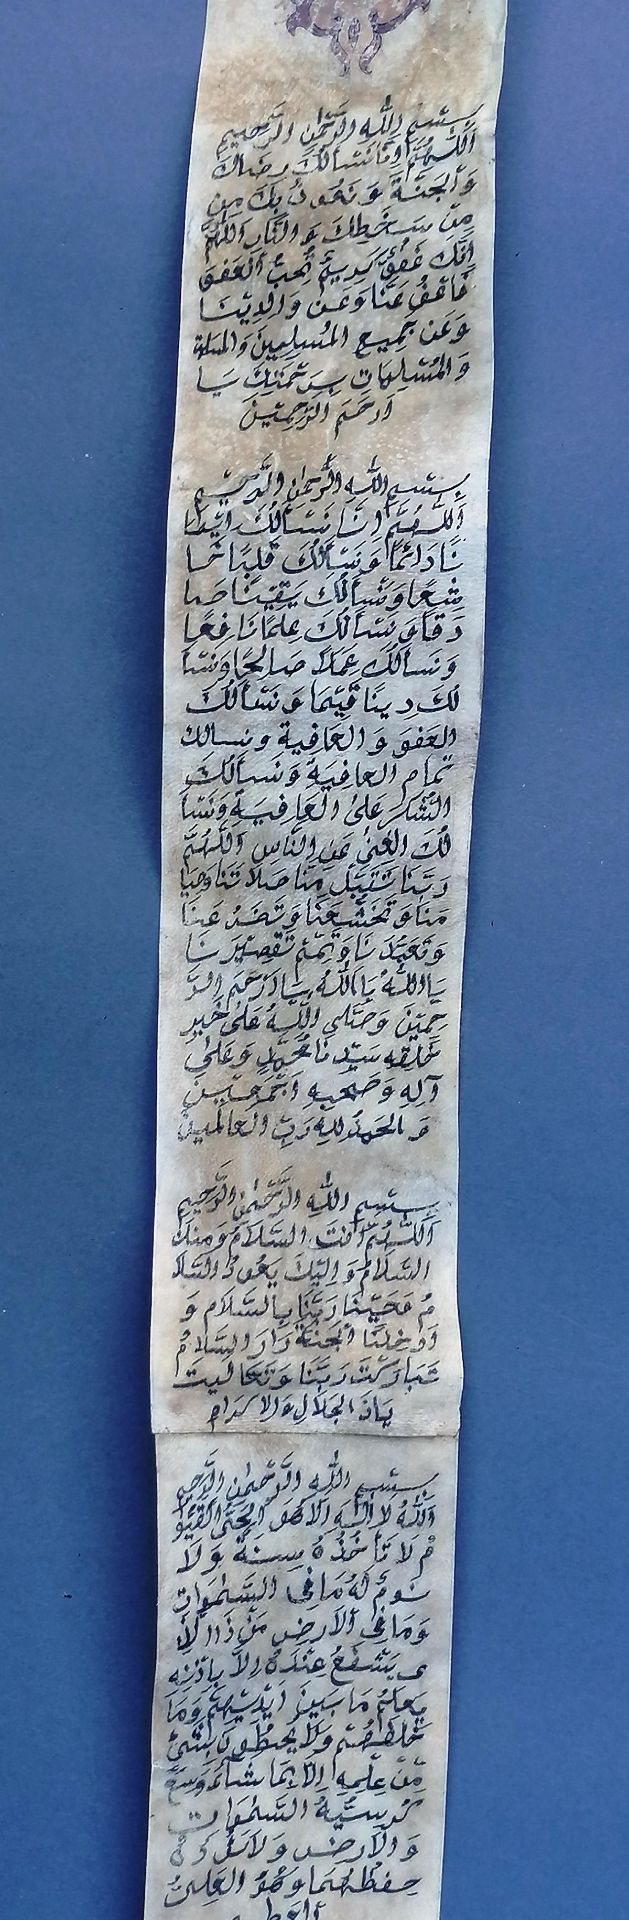 بسم الله الرَّحمٰن الرَّحيم
اَللّٰهُمَّ اِنَّا نَسْأَلُكَ رِضَاكَ
وَالجَنَّةَ وَ نَعُوذُ بِكَ مِن
مِنْ سَخَطِكَ وَ النَّارِ اَللّٰهُمَّ
اِنَّكَ عَفُوٌّ كَرِيمٌ تُحِبُّ الْعَفْوَ
فَاعْفُ عَنَّا وَعَنْ وَالِدِيْنَا
وَعَنْ جَمِيعِ المُسْلِمِينَ
وَالمُسْلِمَاتِ بِرَحْمَتِكَ يَا
اَرحَمَ الرَّحِمِيْنَ
بسم الله الرَّحمٰن الرَّحيم
اَللّٰهُمَّ اِنَّا نَسْأَلُكَ اِيْمَا
نًا دَائِمًا وَ نَسْأَلُكَ قَلْبًا خَا
شِعًا وَ نَسْأَلُكَ يَقِيْنًا صَا
دِقًا وَ نَسْأَلُكَ عِلْمًا نَافِعًا
وَ نَسأَلُكَ عَمَلًا صَالِحًا وَنَسْأَ
لُكَ دِينًا قَيِّمًا وَ نَسْأَلُكَ
العَفوَ وَ العَافِيةَ و نسالك
تَمَام العافِيَةِ وَ نَسأَلُكَ
الشُّكرَ عَلَى العَافِيَةِ وَنَسْأَ
لُكَ الغِنىٰ عَنِ النَّاسِ اَللّٰهُمَّ
رَبَّنَا تَقَبَّل مِنَّا صَلَاتَنَا وصِيَا
مَنَا وَ تَخَشُّعَنَا وَ تَضَرُّعَنَا
وَ تَعَبُّدَنَا وَ تَمِّمْ تَقْصِيْرَنَا
يَا اَللّٰهُ يَا اَللّٰهُ يَا اَرحَمَ الرَّ
حِمِيْنَ وَ صَلَّى اللّٰهُ عَلىٰ خَيرِ
خَلقِه سَيِّدِنَا مُحَمَّدٍ وَ عَلىٰ
آلِهِ وَ صَحبِهِ اَجْمَعِيْنَ
وَ الحَمدُ للهِ رَبِّ العالَمِينَ
بسم الله الرَّحمٰن الرَّحيم
اَللّٰهُمَّ اَنْتَ السَّلَامُ وَمِنكَ
السَّلَامُ وَ اِلَيْكَ يَعُودُ السَّلَا
مُ فَحَيِّنَا رَبَّنَا بِالسَّلَامِ وَ
اَدْخِلنَا الجَنَّةَ دَارَ السَّلَامُ
تَبَارَكْتَ رَبَّنَا وَ تَعَالَيتَ
يَاذَ الجَلَالِ وَالاكرام
بسم الله الرَّحمٰن الرَّحيم
اَللّٰهُ لَا اِلٰهَ اِلَّا هُوَ الحَيُّ القَيُّو
مُ لَا تَأْخُذُهُ سِنَةٌ وَلَا
نَومٌ لَهُ مَا فِى السَّمٰوَاتِ
وَمَا فِى الاَرضِ مَنْ ذَا الَّذِ
ى يَشْفَعُ عِنْدَهُ اِلَّا بِاذْنِهِ
يَعلَمُ مَا بَينَ اَيْدِيْهِمْ وَمَا
خَلفَهُمْ وَلَا يُحيطُونَ بِشَىْءٍ
مِّنْ عِلْمِهِ اِلَّا بِمَا شَاءَ وَسِعَ
كُرسِيُّهُ السَّمٰوَاتِ
وَ الاَرضَ وَلَا يَئُودُهُ
حِفظُهُمَا وَهُوَ العَلِىُّ
العظيم